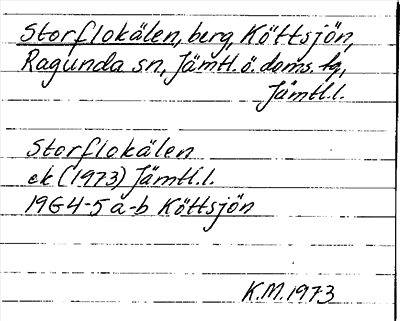 Storflokälen, berg, Köttsjön,
Ragunda sn, Jämtl.ö.doms.tg,
Jämtl.l.
Storflokälen
ek (1973) Jämtl.l.
19G4-5 a-b Köttsjön
K.M.1973